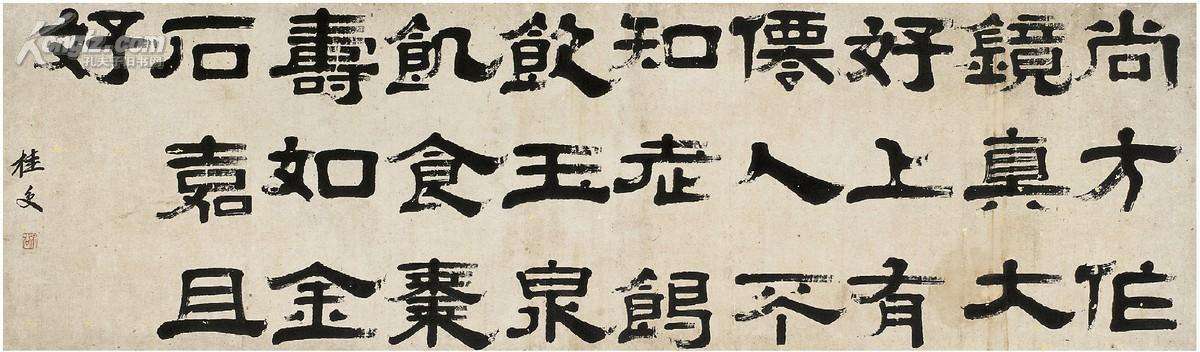 尚方作
鏡真大
好上有
僊人不
知老
飲玉泉
飢食棗
壽如金
石嘉且
好
桂
Kongfz.com
孔夫子旧书网